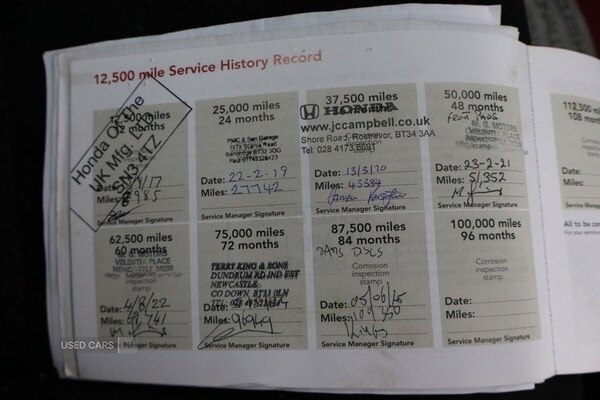 12,500 mile Service History Record
Honda Of The
UK Mfg. Ltd
SN3 4TZ
12,500 miles
Date:
Miles:
25,000 miles
24 months
PMC & Son Garage
Banbridge BT32 3QG
Date: 22-2-19
Miles: 27742
Service Manager Signature
37,500 miles
HONDA
www.jccampbell.co.uk
Shore Road, Rostrevor, BT34 3AA
Tel. 028 4173 8691
Date: 13/3/20
Miles: 45534
Service Manager Signature
50,000 miles
48 months
FRONT PADS
M. G. MOTORS
Date: 23-2-21
Miles: 51,352
Service Manager Signature
112,50
108 mon
All to be co
For your service
62,500 miles
60 months
M. G. MOTORS
VELENTIA PLACE
NEWCASTLE
Date: 4/8/22
Miles:
Service Manager Signature
75,000 miles
72 months
TERRY KING & SONS
DUNDRUM RD IND EST
NEWCASTLE
CO DOWN, BT33 0LN
TEL:
Date:
Miles: 90949
Service Manager Signature
87,500 miles
84 months
PADS DISCS
Corrosion
inspection
stamp
Date: 05/06/25
Miles: 109,450
Service Manager Signature
100,000 miles
96 months
Corrosion
inspection
stamp
Date:
Miles:
Service Manager Signature
USED CARS